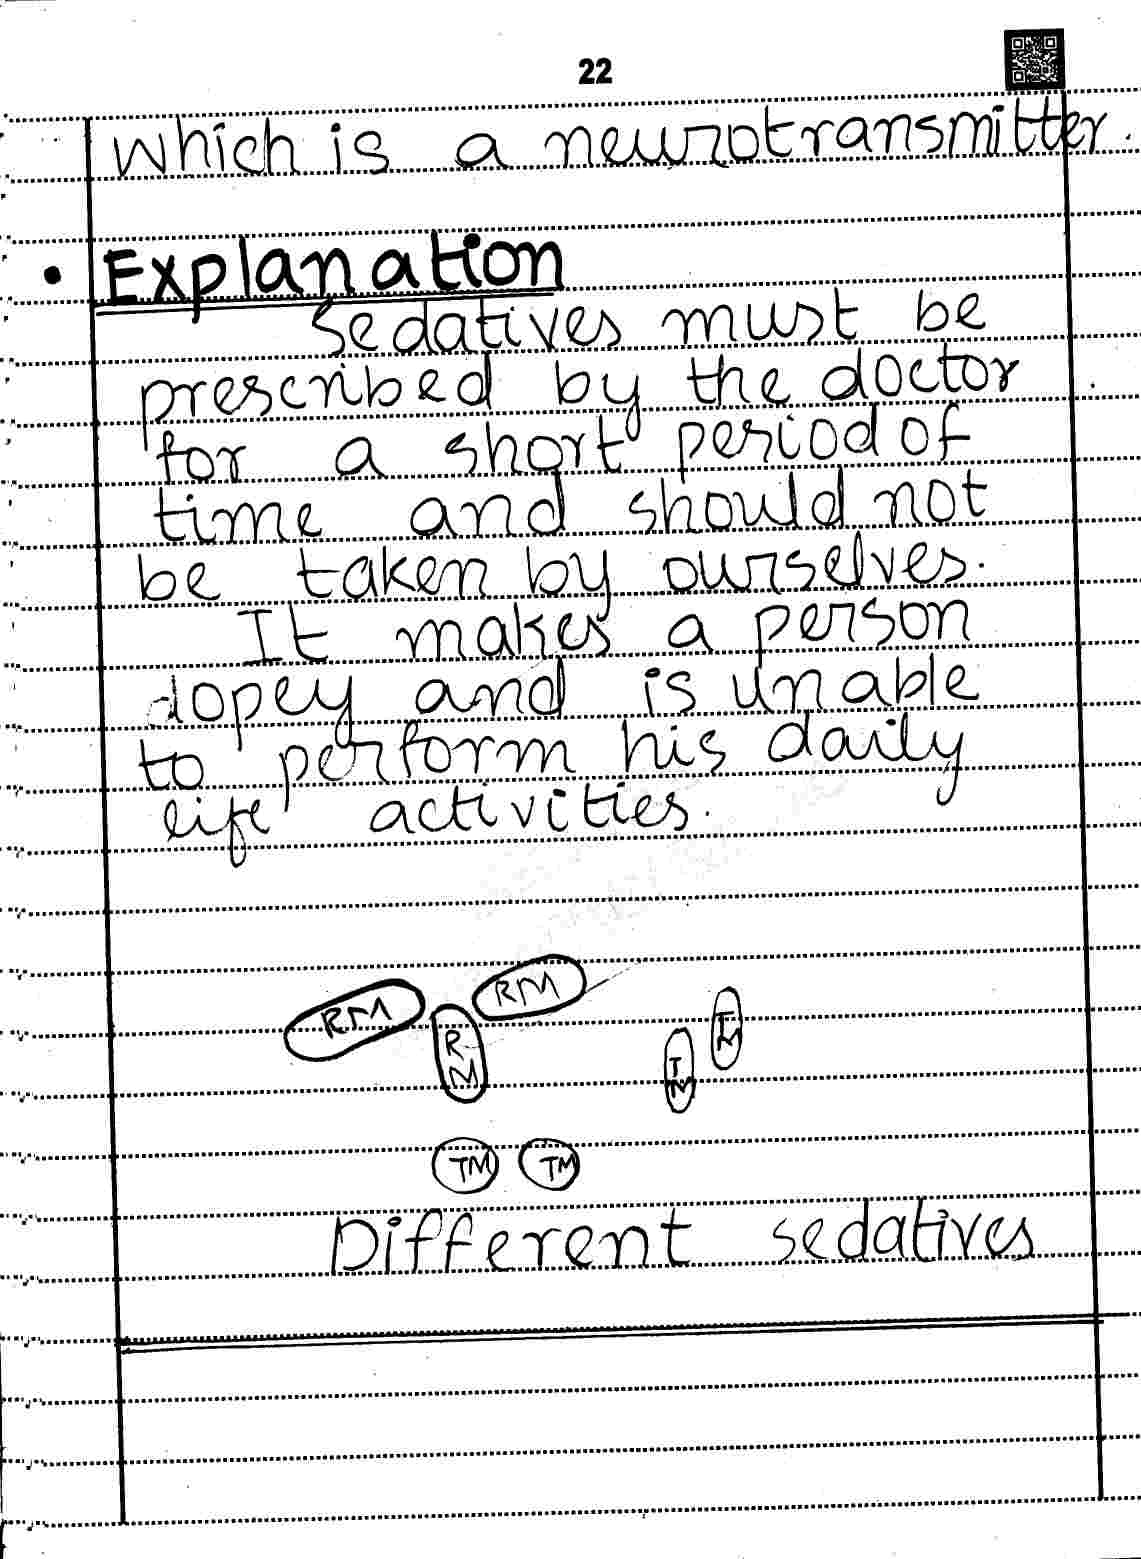 22
which is a neurotransmitter.
• Explanation
Sedatives must be
prescribed by the doctor
for a short period of
time and should not
be taken by ourselves.
It makes a person
dopey and is unable
to perform his daily
life activities.
RM RM
RM
TM
TM
TM TM
Different sedatives